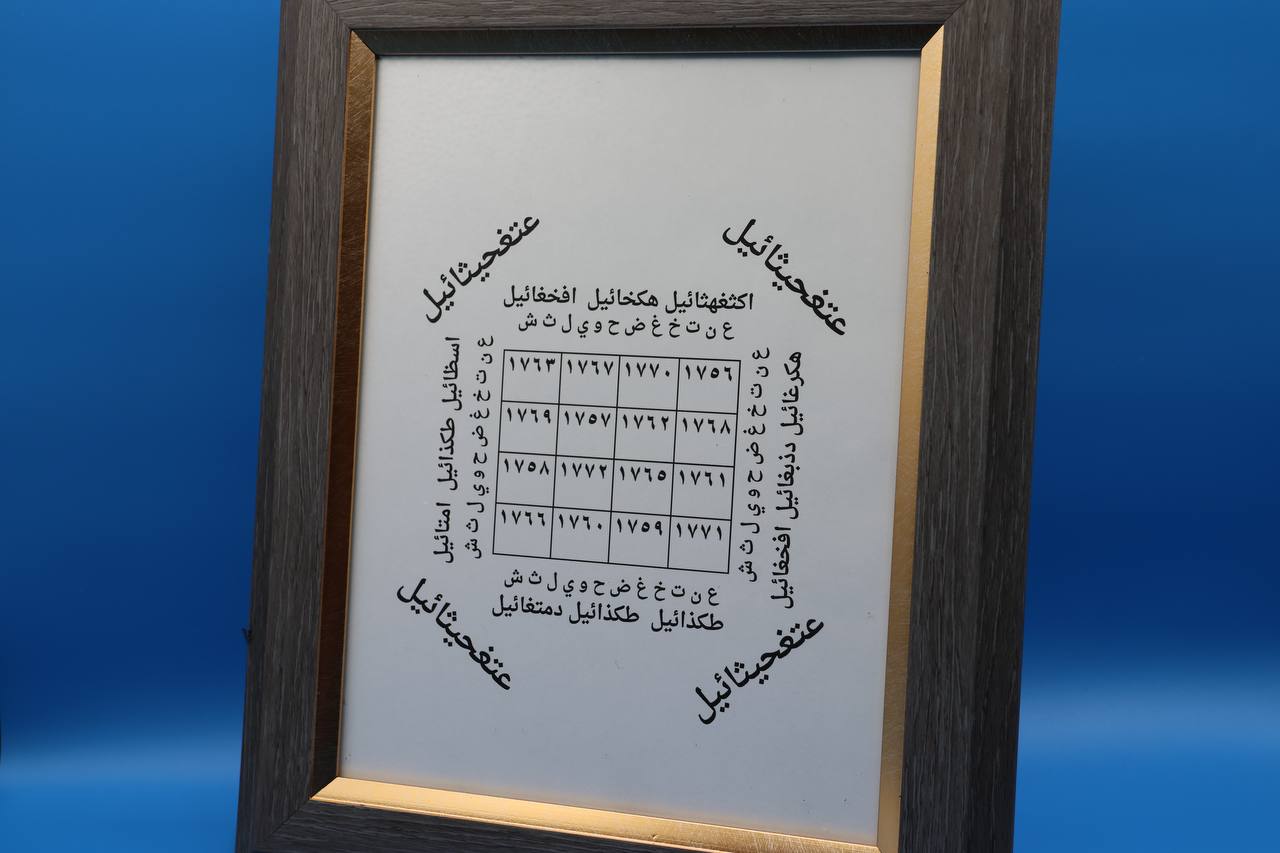 عتغحيثائيل
عتغحيثائيل
اكثغهثائيل هكخائيل افخغائيل
ع ن ت خ غ ض ح و ي ل ث ش
اسظائيل طكذائيل امتائيل
ع ن ت خ غ ض ح و ي ل ث ش
١٧٦٣ ١٧٦٧ ١٧٧٠ ١٧٥٦
١٧٦٩ ١٧٥٧ ١٧٦٢ ١٧٦٨
١٧٥٨ ١٧٧٢ ١٧٦٥ ١٧٦١
١٧٦٦ ١٧٦٠ ١٧٥٩ ١٧٧١
ع ن ت خ غ ض ح و ي ل ث ش
هكرغائيل دذبغائيل افخغائيل
ع ن ت خ غ ض ح و ي ل ث ش
طكذائيل طكذائيل دمتغائيل
عتغحيثائيل
عتغحيثائيل